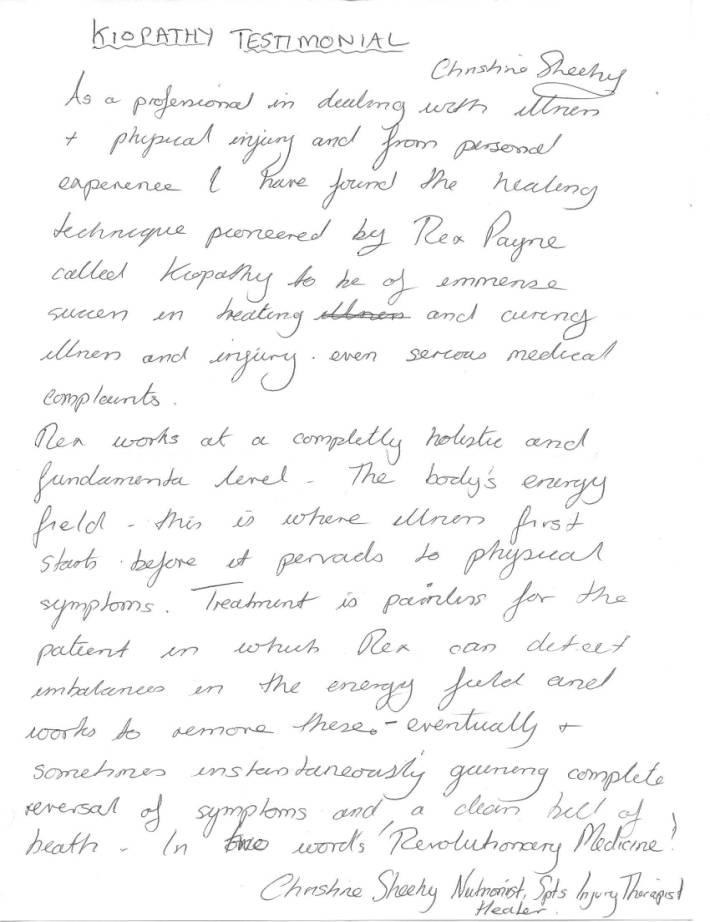 KIOPATHY TESTIMONIAL
Christine Sheehy
As a professional in dealing with illness
+ physical injury and from personal
experience I have found the healing
technique pioneered by Rex Payne
called Kiopathy to be of emmense
success in treating illness and curing
illness and injury. even serious medical
complaints.
Rex works at a completly holistic and
fundamenta level - The body's energy
field - this is where illness first
starts before it pervads to physical
symptoms. Treatment is painless for the
patient in which Rex can detect
imbalances in the energy field and
works to remove these. - eventually +
sometimes instantaneously gaining complete
reversal of symptoms and a clean bill of
heath - In two words 'Revolutionary Medicine'!
Christine Sheehy Nutrionist, Spts Injury Therapist
Healer.